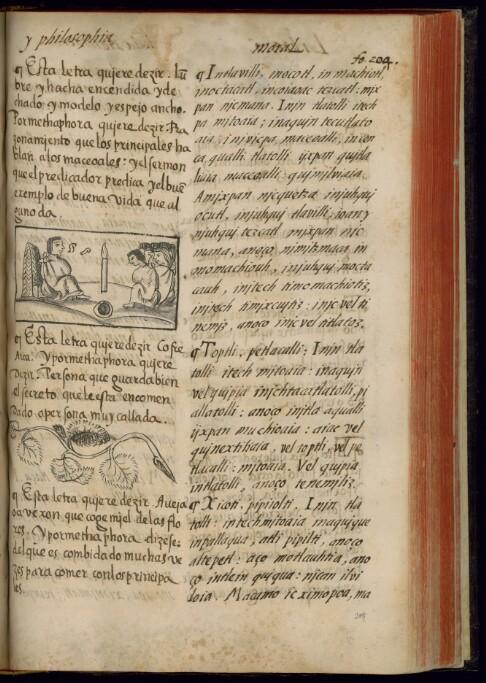 y philosophia
moral.
fo. 204.
¶ Esta letra quiere dezir. Lū
bre y hacha encendida y de
chado, y modelo y espejo ancho.
Por methaphora quiere dezir. Ra
zonamjento que los principales ha
blan a los maceoales: y el sermon
que el predicador predica y el buē
exemplo de buena vida que al
guno da.
¶ Esta letra quiere dezir Cofre
Y por methaphora quiere
Dezir. Persona que guarda bien
el secreto que le esta encomen
dado o persona muy callada.
¶ Esta letra quiere dezir. Aveja
o avexon que coge mjel de las flo
res. Y por methaphora dizese:
del que es combidado muchas ve
zes para comer con los principa
les.
¶ Intlavilli, in ocutl, in machiotl,
in octacatl, in coiaoac tezcatl: mix
pan njcmana. Injn tlatolli itech
pa mitoaia; in aqujn tecutlato
aia, in jvicpa maceoalli, in con
ca, qualli tlatolli ixpan qujtla
liaia maceoalli: qujmilviaia.
Amixpan nicquetza injuhquj
ocutl, injuhquj tlavilli, ioan y
njuhquj tezcatl mixpan nic
mana, anoço njmitzmaca in
momachiouh, injuhquj mocta
cauh, injtech timomachiotiz,
injtech timixcujtiz: injc vel ti
nemjz, anoço injc vel titlatoz.
¶ Toptli, petlacalli: Injn tla
tolli itech mitoaia: in aqujn
vel qujpia injchtacatlatolli, pi
allatolli: anoço intla aqualli
ijxpan muchioaia: aiac vel
qujnextiliaia, vel toptli, vel pe
tlacalli: mitoaia. Vel qujpia
intlatolli, anoço tenemjliz.
¶ Xicotl, pipiolti, Injn tla
tolli: intech mitoaia
altepetl: aço motlauhtia, ano
ço intlein quiqua: njcan ilvi
loia. Macamo ic ximopoa, ma